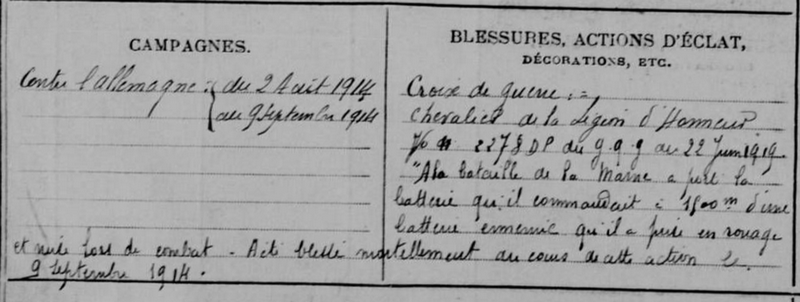 CAMPAGNES.
Contre l'allemagne : du 2 Août 1914
au 9 Septembre 1914
BLESSURES, ACTIONS D'ÉCLAT,
DÉCORATIONS, ETC.
Croix de guerre :
Chevalier de la Légion d'Honneur
2278 DP du g.q.g du 22 Juin 1919
"A la bataille de la Marne a porté la
batterie qu'il commandait à 1500m d'une
batterie ennemie qu'il a prise en rouage
et mise hors de combat. A été blessé mortellement au cours de cette action le
9 Septembre 1914.